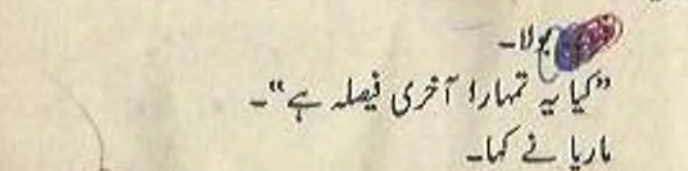 بولا۔
”کیا یہ تمہارا آخری فیصلہ ہے“۔
ماریا نے کہا۔